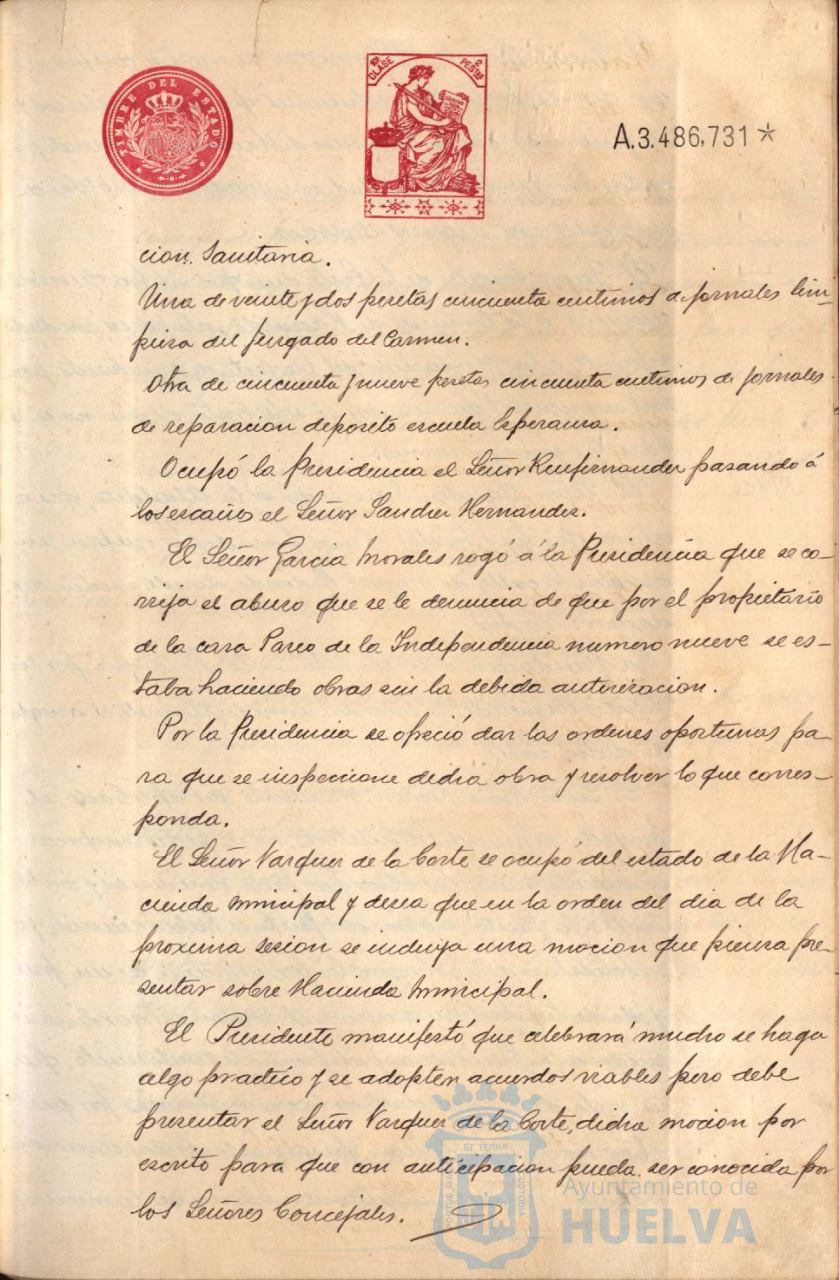 TIMBRE DEL ESTADO
CLASE
2
PESTAS
A.3.486,731
cion. Sanitaria.
Una de veinte y dos pesetas cincuenta centimos de jornales lim-
pieza del Juzgado del Carmen.
Otra de cincuenta y nueve pesetas cincuenta centimos de jornales
de reparacion deposito escuela Esperanza.
Ocupó la Presidencia el Señor pasando á
los escaños el Señor Hernandez.
El Señor Garcia Morales rogó á la Presidencia que se co-
rrija el abuso que se le denuncia de que por el propietario
de la casa Paseo de la Independencia numero nueve se es-
taba haciendo obras sin la debida autorizacion.
Por la Presidencia se ofreció dar las ordenes oportunas pa-
ra que se inspeccione dicha obra y resolver lo que corres-
ponda.
El Señor Vazquez de la Corte se ocupó del estado de la Ha-
cienda municipal y desea que en la orden del dia de la
proxima sesion se incluya una mocion que piensa pre-
sentar sobre Hacienda Municipal.
El Presidente manifestó que celebrará mucho se haga
algo practico y se adopten acuerdos viables pero debe
presentar el Señor Vazquez de la Corte, dicha mocion por
escrito para que con anticipacion pueda ser conocida por
los Señores Concejales.
Ayuntamiento de
HUELVA